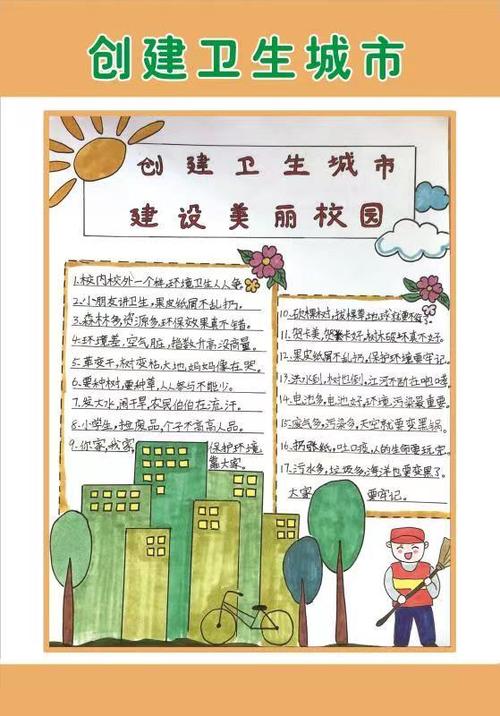 创建卫生城市
创建卫生城市
建设美丽校园
1.校内校外一个样,环境卫生人人争。
2.小朋友讲卫生,果皮纸屑不乱扔。
3.森林多,资源多,环保效果真不错。
4.环境差,空气脏,指数升高没商量。
5.草变干,树变枯,大地妈妈像在哭。
6.要种树,要种草,人人参与不能少。
7.发大水,闹干旱,农民伯伯在流汗。
8.小学生,捡废品,个子不高高人品。
9.你家,我家,保护环境
靠大家。
10.砍棵树,拔棵草,地球就要不
11.贺卡美,贺卡好,树木破坏真不好。
12.果皮纸屑不乱扔,保护环境要牢记。
13.洪水到,树也倒,江河不断在咆哮
14.电池多,电池好,环境污染最重要。
15.废气多,污染多,天空就要变黑锅。
16.扔张纸,吐口痰,人的生命要玩完。
17.污水多,垃圾多,海洋也要变黑了。
大家要牢记。